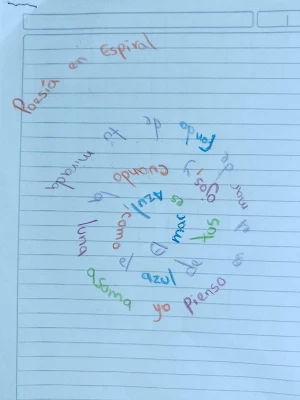 Poesía en Espiral
El mar es Azul como el azul de tus ojos y cuando la luna asoma yo pienso en el mar de fondo de tu mirada